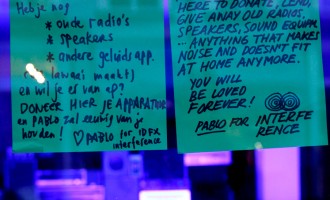 Heb je nog
* oude radio's
* speakers
* andere geluids app.
lawaai maakt)
en wil je er van af?
DONEER HIER JE APPARATUUR
en PABLO zal eeuwig van je
houden! ♡ PABLO for IDFX
interference
HERE TO DONATE, LEND,
GIVE AWAY OLD RADIOS,
SPEAKERS, SOUND EQUIPM.
... ANYTHING THAT MAKES
NOISE AND DOESN'T FIT
AT HOME ANYMORE.
YOU WILL
BE LOVED
FOREVER!
PABLO FOR INTERFE
RENCE